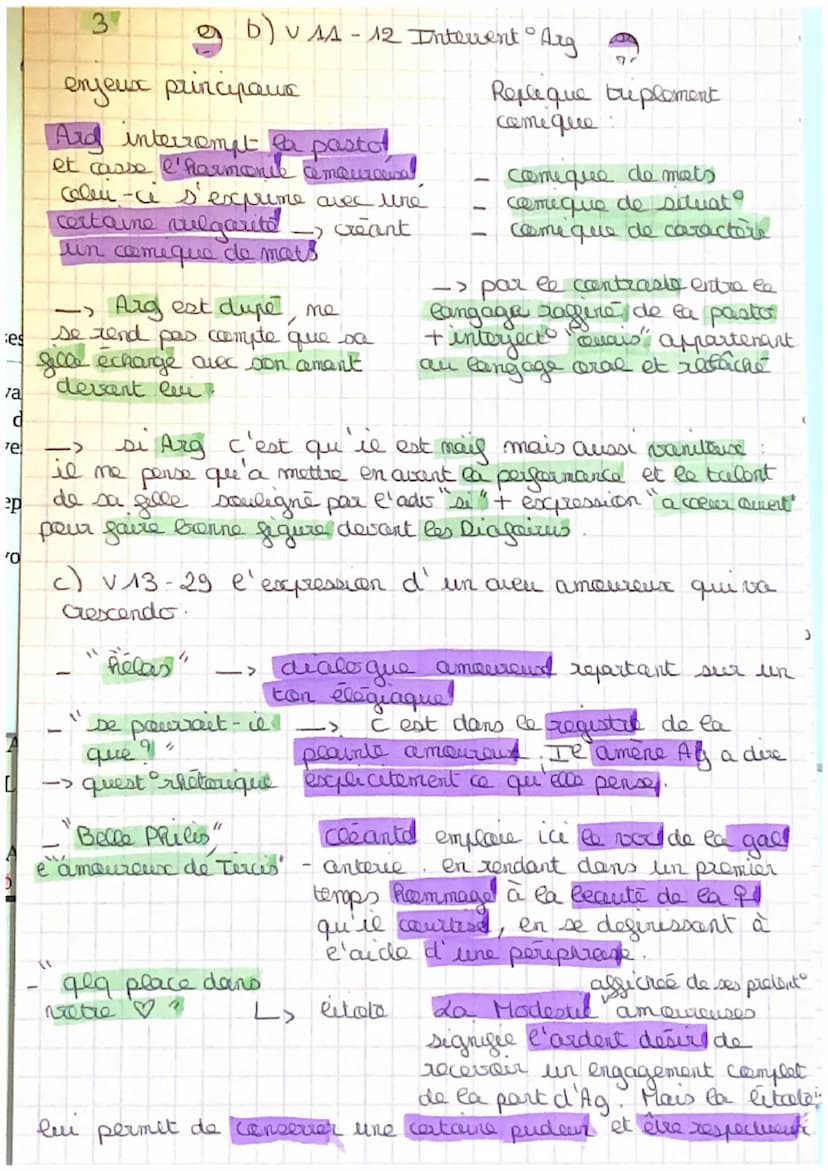 3
b) v 11 - 12 Intervent° Arg
enjeux principaux
Arg interrompt la pasto
et casse l'harmonie amoureuse
celui-ci s'exprime avec une
certaine vulgarité —> créant
un comique de mots
—> Arg est dupé, ne
se rend pas compte que sa
fille échange avec son amant
devant lui !
Replique triplement
comique :
- comique de mots
- comique de situat°
- comique de caractère
—> par le contraste entre la
langage raffiné de la pasto
+ interject° "ouais" appartenant
au langage oral et relâché
—> si Arg c'est qu'il est naïf mais aussi vaniteux :
il ne pense qu'a mettre en avant la performance et le talent
de sa fille souligné par l'adv "si" + expression "a coeur ouvert"
pour faire bonne figure devant les Diafoirus.
c) v 13-29 l'expression d'un aveu amoureux qui va
crescendo.
- "Hélas" —> dialogue amoureux repartant sur un
ton élégiaque
- "se pourrait-il —> c'est dans le registre de la
que ?" plainte amoureux, Il amène Ag a dire
—> quest° rhétorique explicitement ce qu'elle pense.
- "Belle Philis" Cléante emploie ici le voc de la gal
l'"amoureux de Tircis" - anterie. en rendant dans un premier
temps hommage à la beauté de la ♀
qu'il courtise, en se définissant à
l'aide d'une périphrase.
- "qlq place dans
votre ♡" affichée de ses pretent°
L> litote La Modestie amoureuses
signifie l'ardent désir de
recevoir un engagement complet
de la part d'Ag. Mais la litote
lui permet de conserver une certaine pudeur et être respectueux